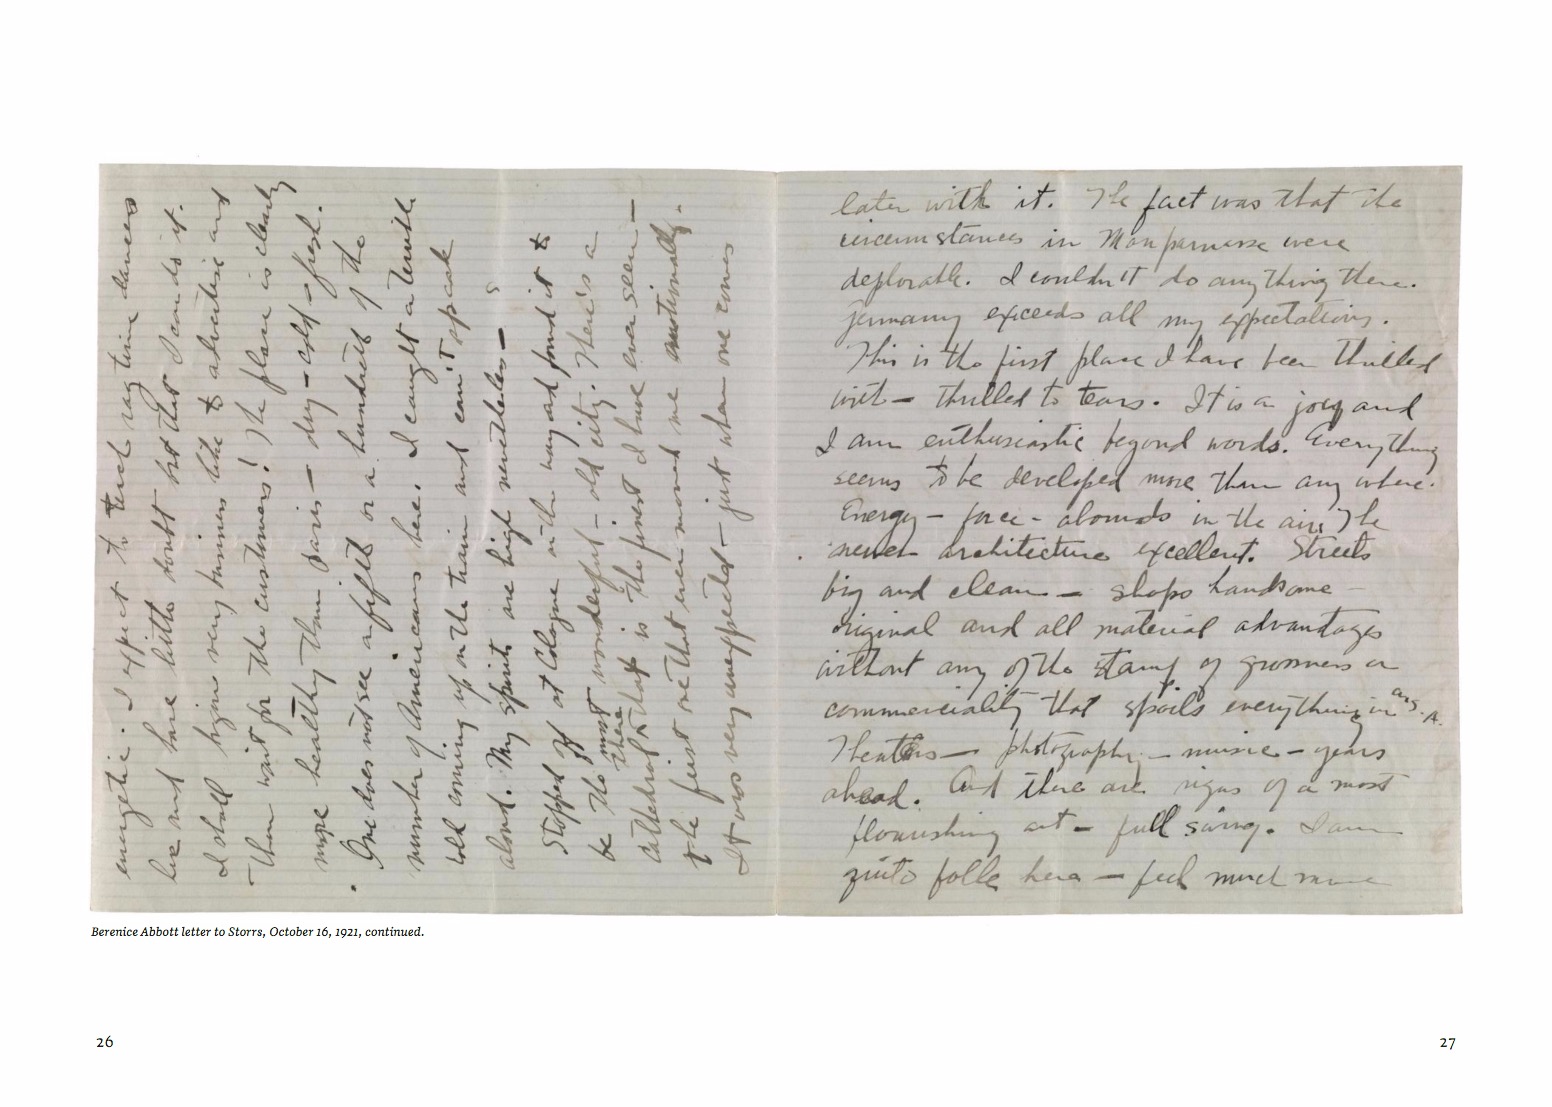 later with it. The fact was that the
circumstances in Monparnasse were
deplorable. I couldn't do anything there.
Germany exceeds all my expectations.
This is the first place I have been thrilled
with — thrilled to tears. It is a joy and
I am enthusiastic beyond words. Everything
seems to be developed more than any where.
Energy — force — abounds in the air. The
newer architecture excellent. Streets
big and clean — shops handsome —
original and all material advantages
without any of the stamp of grossness or
commerciality that spoils everything in
Theaters — photography — music — years
ahead. And there are signs of a most
flourishing art — full swing. I am
quite folle here — feel much more
energetic. I expect to teach rag time dances
here and have little doubt but that I can do it.
I shall begin very business like to advertise and
then wait for the customers! The place is clearly
more healthy than Paris — dry — cold — fresh.
One does not see a fiftieth or a hundredth of the
number of Americans here. I caught a terrible
cold coming up on the train and can't speak
aloud. My spirits are high nevertheless —
Stopped off at Cologne on the way and found it to
be the most wonderful — old city. There's a
cathedral there that is the finest I have ever seen —
the first one that ever moved me emotionally.
It was very unexpected — just when one comes
Berenice Abbott letter to Storrs, October 16, 1921, continued.
26
27